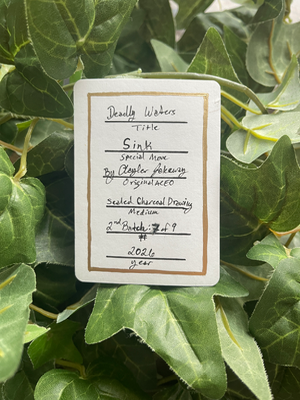 Deadly Waters
Title
Sink
Special Move
By
Original ACEO
Sealed Charcoal Drawing
Medium
2nd Batch: of 9
#
2026
year